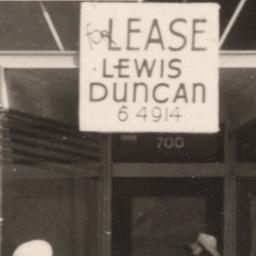 for LEASE
LEWIS
DUNCAN
6 4914
700